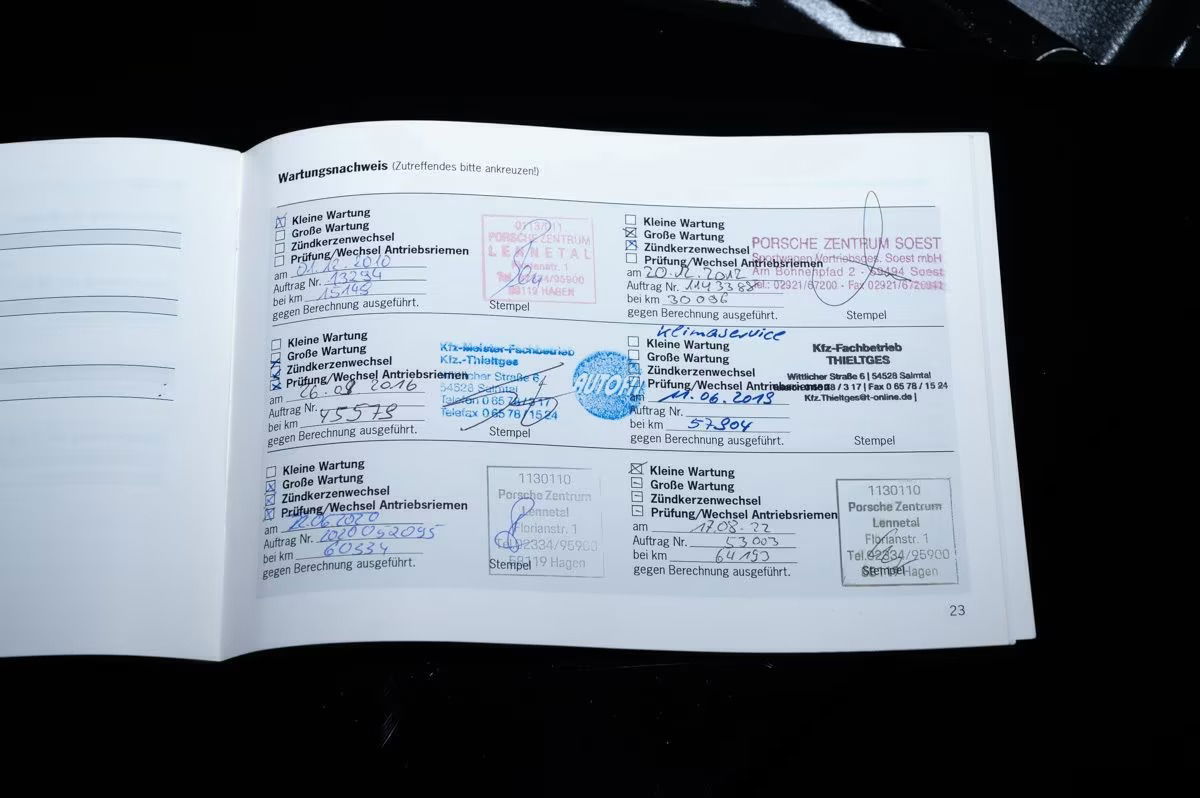 Wartungsnachweis (Zutreffendes bitte ankreuzen!)
Kleine Wartung
Große Wartung
Zündkerzenwechsel
Prüfung/Wechsel Antriebsriemen
am 01.12.2010
Auftrag Nr. 13294
bei km 15145
gegen Berechnung ausgeführt.
PORSCHE ZENTRUM
LENNETAL
58119 HAGEN
Stempel
Kleine Wartung
Große Wartung
Zündkerzenwechsel
Prüfung/Wechsel Antriebsriemen
am 20.12.2012
Auftrag Nr.
bei km 30096
gegen Berechnung ausgeführt.
PORSCHE ZENTRUM SOEST
Sportwagen Vertriebsges. Soest mbH
Am Bohnenpfad 2 - 59494 Soest
Tel.: 02921/67200 - Fax 02921/6720
Stempel
Kleine Wartung
Große Wartung
Zündkerzenwechsel
Prüfung/Wechsel Antriebsriemen
am 26.09.2016
Auftrag Nr.
bei km 45579
gegen Berechnung ausgeführt.
Kfz-Meister-Fachbetrieb
Kfz.-Thieltges
Wittlicher Straße 6
54528 Salmtal
Telefon 0 65 78/3 17
Telefax 0 65 78/15 24
AUTOFIT
Stempel
Klimaservice
Kleine Wartung
Große Wartung
Zündkerzenwechsel
Prüfung/Wechsel Antriebsriemen
am 11.06.2019
Auftrag Nr.
bei km 57904
gegen Berechnung ausgeführt.
Kfz-Fachbetrieb
THIELTGES
Wittlicher Straße 6 | 54528 Salmtal
/ 3 17 | Fax 0 65 78 / 15 24
Kfz.Thieltges@t-online.de |
Stempel
Kleine Wartung
Große Wartung
Zündkerzenwechsel
Prüfung/Wechsel Antriebsriemen
am 12.06.2020
Auftrag Nr. 2020052095
bei km 60334
gegen Berechnung ausgeführt.
1130110
Porsche Zentrum
Lennetal
Florianstr. 1
Tel.02334/95900
58119 Hagen
Stempel
Kleine Wartung
Große Wartung
Zündkerzenwechsel
Prüfung/Wechsel Antriebsriemen
am 17.08.22
Auftrag Nr. 53003
bei km 64193
gegen Berechnung ausgeführt.
1130110
Porsche Zentrum
Lennetal
Florianstr. 1
Tel.02334/95900
58119 Hagen
Stempel
23